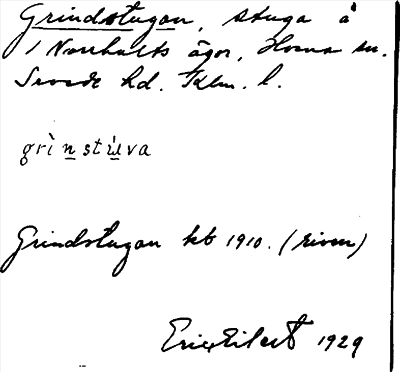 Grindstugan, stuga å
/ Norrhults ägor, Horns sn.
Sevede hd. Klm. l.
grìnstu̇va
Grindstugan kb 1910. (riven)
Eric Eilert 1929